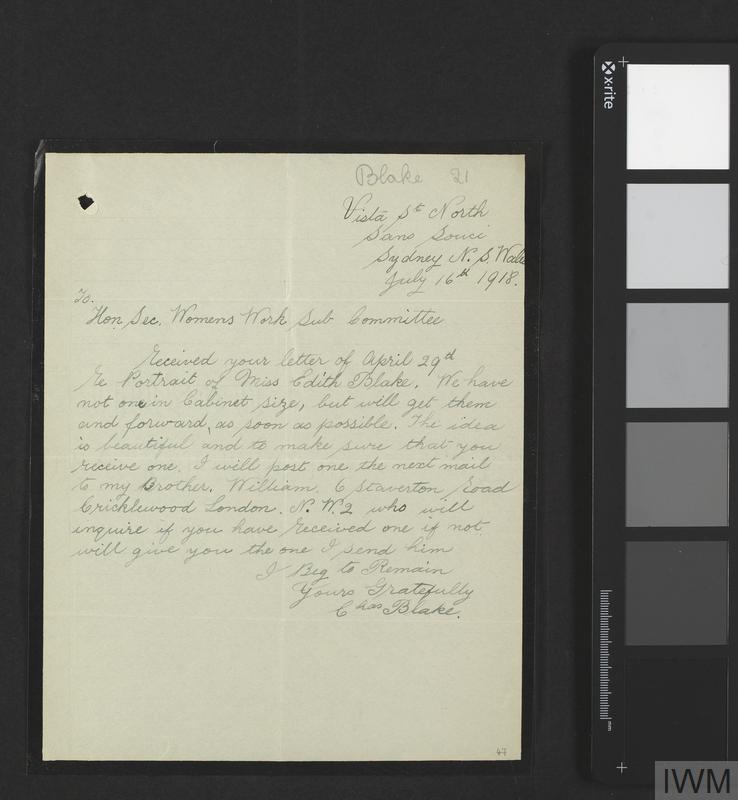 Blake 21
Vista St North
Sans Souci
Sydney N. S. Wales
July 16th 1918.
To.
Hon. Sec. Womens Work Sub Committee
Received your letter of April 29th
Re Portrait of Miss Edith Blake. We have
not one in Cabinet size, but will get them
and forward, as soon as possible. The idea
is beautiful and to make sure that you
receive one. I will post one the next mail
to my Brother. William. 6 Staverton Road
Cricklewood London. N. W. 2 who will
inquire if you have received one if not
will give you the one I send him
I Beg to Remain
Yours Gratefully
Chas Blake.
47
x-rite
mm
IWM